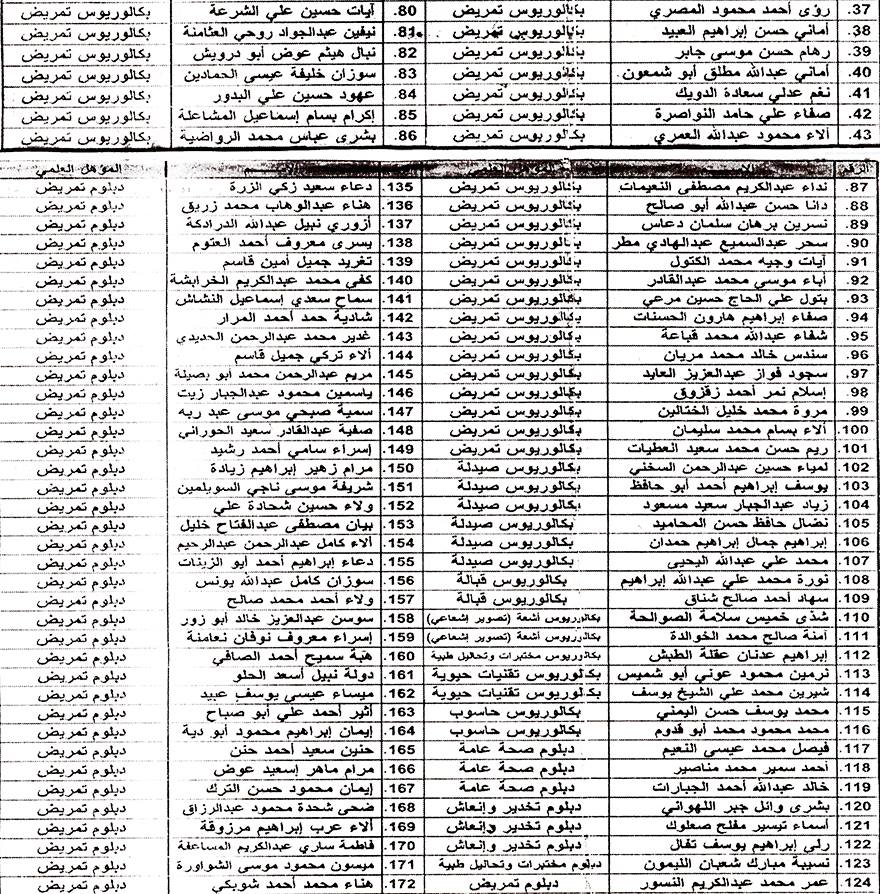 37. رؤى أحمد محمود المصري بكالوريوس تمريض 80. آيات حسين علي الشرعة بكالوريوس تمريض
38. أماني حسن إبراهيم العبيد بكالوريوس تمريض 81. نيفين عبدالجواد روحي العثامنة بكالوريوس تمريض
39. رهام حسن موسى جابر بكالوريوس تمريض 82. نبال هيثم عوض أبو درويش بكالوريوس تمريض
40. أماني عبدالله مطلق أبو شمعون بكالوريوس تمريض 83. سوزان خليفة عيسى الحمادين بكالوريوس تمريض
41. نغم عدلي سعادة الدويك بكالوريوس تمريض 84. عهود حسين علي البدور بكالوريوس تمريض
42. صفاء علي حامد النواصرة بكالوريوس تمريض 85. إكرام بسام إسماعيل المشاعلة بكالوريوس تمريض
43. آلاء محمود عبدالله العمري بكالوريوس تمريض 86. بشرى عباس محمد الرواضية بكالوريوس تمريض
الرقم الاسم المؤهل العلمي الاسم المؤهل العلمي
87. نداء عبدالكريم مصطفى النعيمات بكالوريوس تمريض 135. دعاء سعيد زكي الزرة دبلوم تمريض
88. دانا حسن عبدالله أبو صالح بكالوريوس تمريض 136. هناء عبدالوهاب محمد زريق دبلوم تمريض
89. نسرين برهان سلمان دعاس بكالوريوس تمريض 137. أزوري نبيل عبدالله الدرادكة دبلوم تمريض
90. سحر عبدالسميع عبدالهادي مطر بكالوريوس تمريض 138. يسرى معروف أحمد العتوم دبلوم تمريض
91. آيات وجيه محمد الكتول بكالوريوس تمريض 139. تغريد جميل أمين قاسم دبلوم تمريض
92. أباء موسى محمد عبدالقادر بكالوريوس تمريض 140. كفى محمد عبدالكريم الخرابشة دبلوم تمريض
93. بتول علي الحاج حسين مرعي بكالوريوس تمريض 141. سماح سعدي إسماعيل النشاش دبلوم تمريض
94. صفاء إبراهيم هارون الحسنات بكالوريوس تمريض 142. شادية حمد أحمد المرار دبلوم تمريض
95. شفاء عبدالله محمد قباعة بكالوريوس تمريض 143. غدير محمد عبدالرحمن الحديدي دبلوم تمريض
96. سندس خالد محمد مريان بكالوريوس تمريض 144. آلاء تركي جميل قاسم دبلوم تمريض
97. سجود فواز عبدالعزيز العابد بكالوريوس تمريض 145. مريم عبدالرحمن محمد أبو بصيلة دبلوم تمريض
98. إسلام نمر أحمد زقزوق بكالوريوس تمريض 146. ياسمين محمود عبدالجبار زيت دبلوم تمريض
99. مروة محمد خليل الختالين بكالوريوس تمريض 147. سمية صبحي موسى عبد ربه دبلوم تمريض
100. آلاء بسام محمد سليمان بكالوريوس تمريض 148. صفية عبدالقادر سعيد الحوراني دبلوم تمريض
101. ريم حسن محمد سعيد العطيات بكالوريوس تمريض 149. إسراء سامي أحمد رشيد دبلوم تمريض
102. لمياء حسين عبدالرحمن السخني بكالوريوس صيدلة 150. مرام زهير إبراهيم زيادة دبلوم تمريض
103. يوسف إبراهيم أحمد أبو حافظ بكالوريوس صيدلة 151. شريفة موسى ناجي السويلمين دبلوم تمريض
104. زياد عبدالجبار سعيد مسعود بكالوريوس صيدلة 152. ولاء حسين شحادة علي دبلوم تمريض
105. نضال حافظ حسن المحاميد بكالوريوس صيدلة 153. بيان مصطفى عبدالفتاح خليل دبلوم تمريض
106. إبراهيم جمال إبراهيم حمدان بكالوريوس صيدلة 154. آلاء كامل عبدالرحمن عبدالرحيم دبلوم تمريض
107. محمد علي عبدالله اليحيى بكالوريوس صيدلة 155. دعاء إبراهيم أحمد أبو الزينات دبلوم تمريض
108. نورة محمد علي عبدالله إبراهيم بكالوريوس قبالة 156. سوزان كامل عبدالله يونس دبلوم تمريض
109. سهاد أحمد صالح شناق بكالوريوس قبالة 157. ولاء أحمد محمد صالح دبلوم تمريض
110. شذى خميس سلامة الصوالحة بكالوريوس أشعة (تصوير إشعاعي) 158. سوسن عبدالعزيز خالد أبو زور دبلوم تمريض
111. آمنة صالح محمد الخوالدة بكالوريوس أشعة (تصوير إشعاعي) 159. إسراء معروف نوفان نعامنة دبلوم تمريض
112. إبراهيم عدنان عقلة الطبش بكالوريوس مختبرات وتحاليل طبية 160. هبة سميح أحمد الصافي دبلوم تمريض
113. نرمين محمود عوني أبو شميس بكالوريوس تقنيات حيوية 161. دولة نبيل أسعد الحلو دبلوم تمريض
114. شيرين محمد علي الشيخ يوسف بكالوريوس تقنيات حيوية 162. ميساء عيسى يوسف عبيد دبلوم تمريض
115. محمد يوسف حسن اليمني بكالوريوس حاسوب 163. أثير أحمد علي أبو صباح دبلوم تمريض
116. محمد محمود محمد أبو قدوم بكالوريوس حاسوب 164. إيمان إبراهيم محمود أبو دية دبلوم تمريض
117. فيصل محمد عيسى النعيم دبلوم صحة عامة 165. حنين سعيد أحمد حنن دبلوم تمريض
118. أحمد سمير محمد مناصير دبلوم صحة عامة 166. مرام ماهر إسعيد عوض دبلوم تمريض
119. خالد عبدالله أحمد الجبارات دبلوم صحة عامة 167. إيمان محمود حسن الترك دبلوم تمريض
120. بشرى وائل جبر اللهواني دبلوم تخدير وإنعاش 168. ضحى شحدة محمود عبدالرزاق دبلوم تمريض
121. أسماء تيسير مفلح صعلوك دبلوم تخدير وإنعاش 169. آلاء عرب إبراهيم مرزوقة دبلوم تمريض
122. رلى إبراهيم يوسف تفال دبلوم تخدير وإنعاش 170. فاطمة ساري عبدالكريم المساعفة دبلوم تمريض
123. نسيبة مبارك شعبان الليمون دبلوم مختبرات وتحاليل طبية 171. ميسون محمود موسى الشواورة دبلوم تمريض
124. عمر محمد عبدالكريم النسور دبلوم تمريض 172. هناء محمد أحمد شوبكي دبلوم تمريض